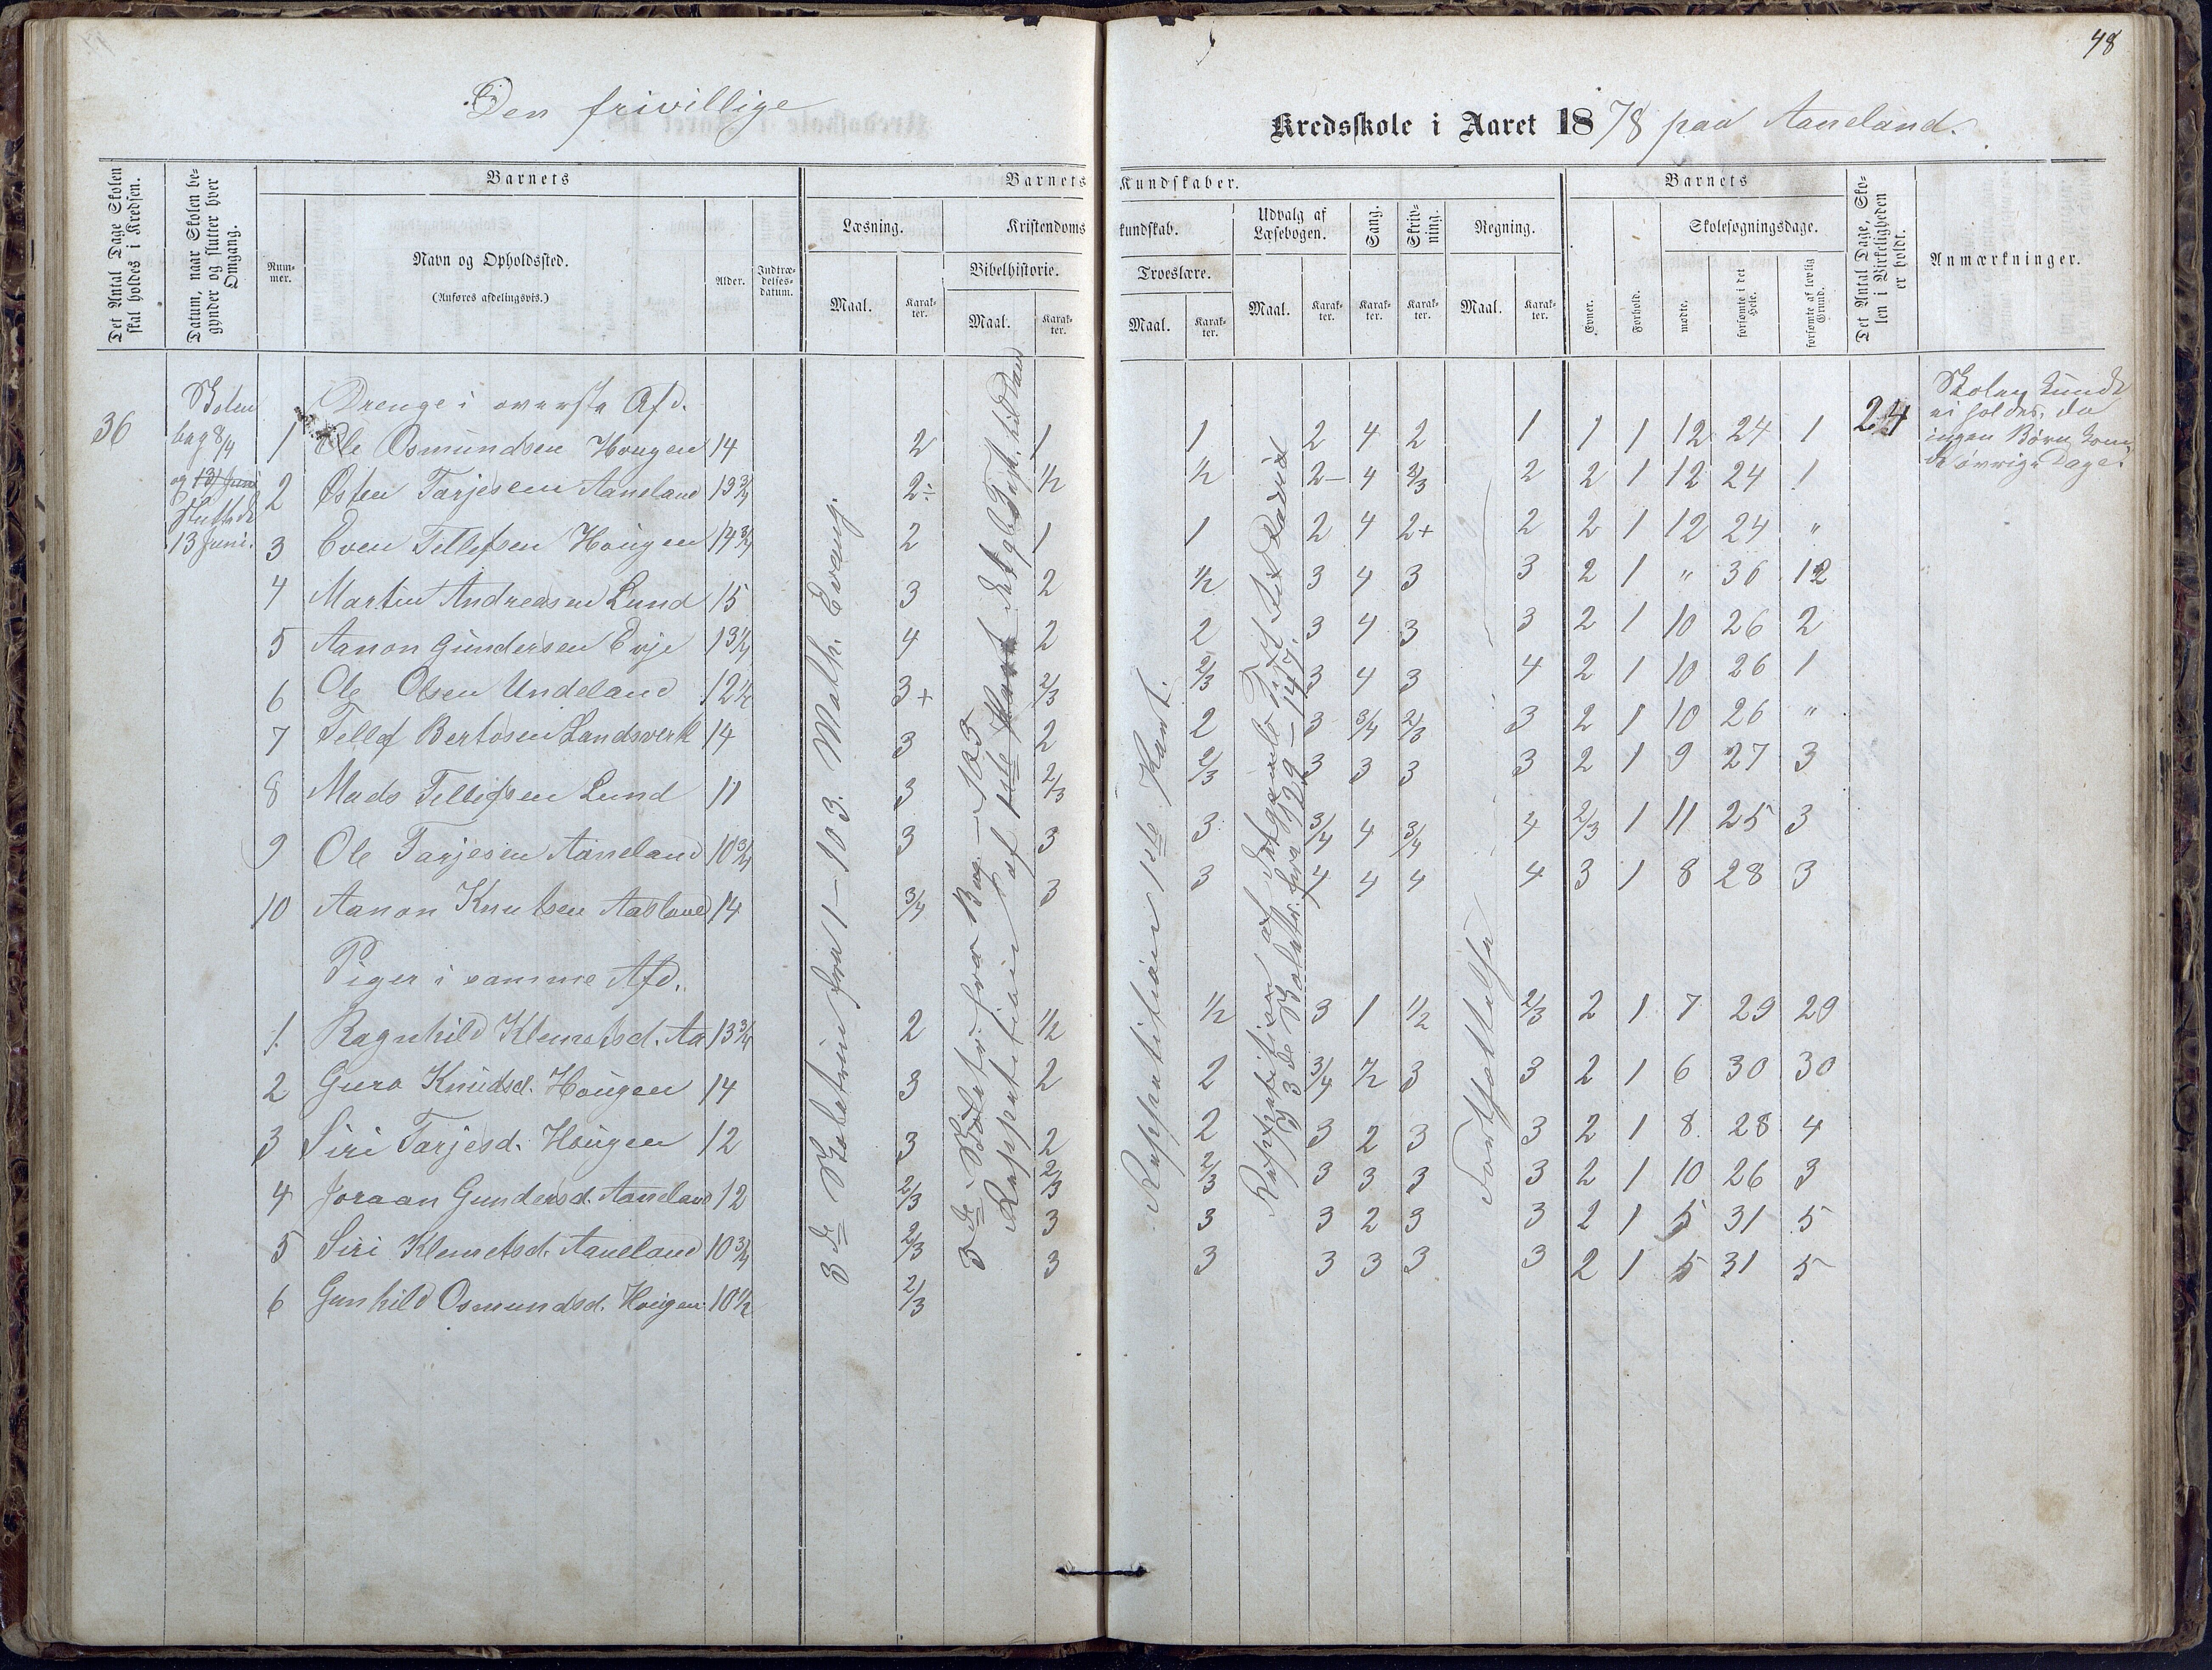 48
Den frivillige Kredsskole i Aaret 1878 paa Aaneland.
Det Antal Dage Skolen skal holdes i Kredsen.
Datum, naar Skolen begynder og slutter hver Omgang.
Barnets
Nummer.
Navn og Opholdssted.
(Anføres afdelingsvis.)
Alder.
Indtrædelsesdatum.
Barnets Kundskaber.
Læsning.
Maal.
Karakter.
Kristendomskundskab.
Bibelhistorie.
Maal.
Karakter.
Troeslære.
Maal.
Karakter.
Udvalg af Læsebogen.
Maal.
Karakter.
Sang.
Karakter.
Skrivning.
Karakter.
Regning.
Maal.
Karakter.
Barnets
Evner.
Forhold.
Skolesøgningsdage.
mødte.
forsømte i det Hele.
forsømte af lovlig Grund.
Det Antal Dage, Skolen i Virkeligheden er holdt.
Anmærkninger.
36
Skolen
beg 8/4
og 13 Juni
Sluttede
13 Juni.
Drenge i øverste Afd.
1 Ole Osmundsen Hougen 14 2 1 1 2 4 2 1 1 1 12 24 1
2 Østen Tarjesen Aaneland 13 3/4 2÷ 1/2 1/2 2– 4 2/3 2 2 1 12 24 1
3 Even Tellefsen Hougen 14 3/4 2 1 1 2 4 2+ 2 2 1 12 24 "
4 Martin Andreasen Lund 15 3 2 1/2 3 4 3 3 2 1 " 36 12
5 Aanon Gundersen Evje 13 1/4 4 2 2 3 4 3 3 2 1 10 26 2
6 Ole Olsen Undeland 12 1/2 3+ 2/3 2/3 3 4 3 4 2 1 10 26 1
7 Tellef Bertosen Landsverk 14 3 2 2 3 3/4 2/3 3 2 1 10 26 "
8 Mads Tellefsen Lund 11 3 2/3 2/3 3 3 3 3 2 1 9 27 3
9 Ole Tarjesen Aaneland 10 3/4 3 3 3 3/4 4 3/4 4 2/3 1 11 25 3
10 Aanon Knutsen Aasland 14 3/4 3 3 4 4 4 4 3 1 8 28 3
Piger i samme Afd.
1 Ragnhild Klemetsd. Aa 13 3/4 2 1/2 1/2 3 1 1/2 2/3 2 1 7 29 29
2 Guro Knudsd. Hougen 14 3 2 2 3/4 1/2 3 3 2 1 6 30 30
3 Siri Tarjesd. Hougen 12 3 2 2 3 2 3 3 2 1 8 28 4
4 Joraan Gundersd. Aaneland 12 2/3 2/3 2/3 3 3 3 3 2 1 10 26 3
5 Siri Klemetsd. Aaneland 10 3/4 2/3 3 3 3 2 3 3 2 1 5 31 5
6 Gunhild Osmundsd. Hougen 10 1/2 2/3 3 3 3 3 3 3 2 1 5 31 5
3de Skoletrin fra 1–103. Math. Evang.
3de Skoletr. fra Bog – 105
Reppetition af 1ste Part det gl. Test. til David
Reppetition 1ste Part.
Reppetition af det gamle Test. til David
og 3de Skoletr. fra 129–147.
Forskjellige
24
Skolen kunde
ei holdes, da
ingen Børn kom
de øvrige Dage.